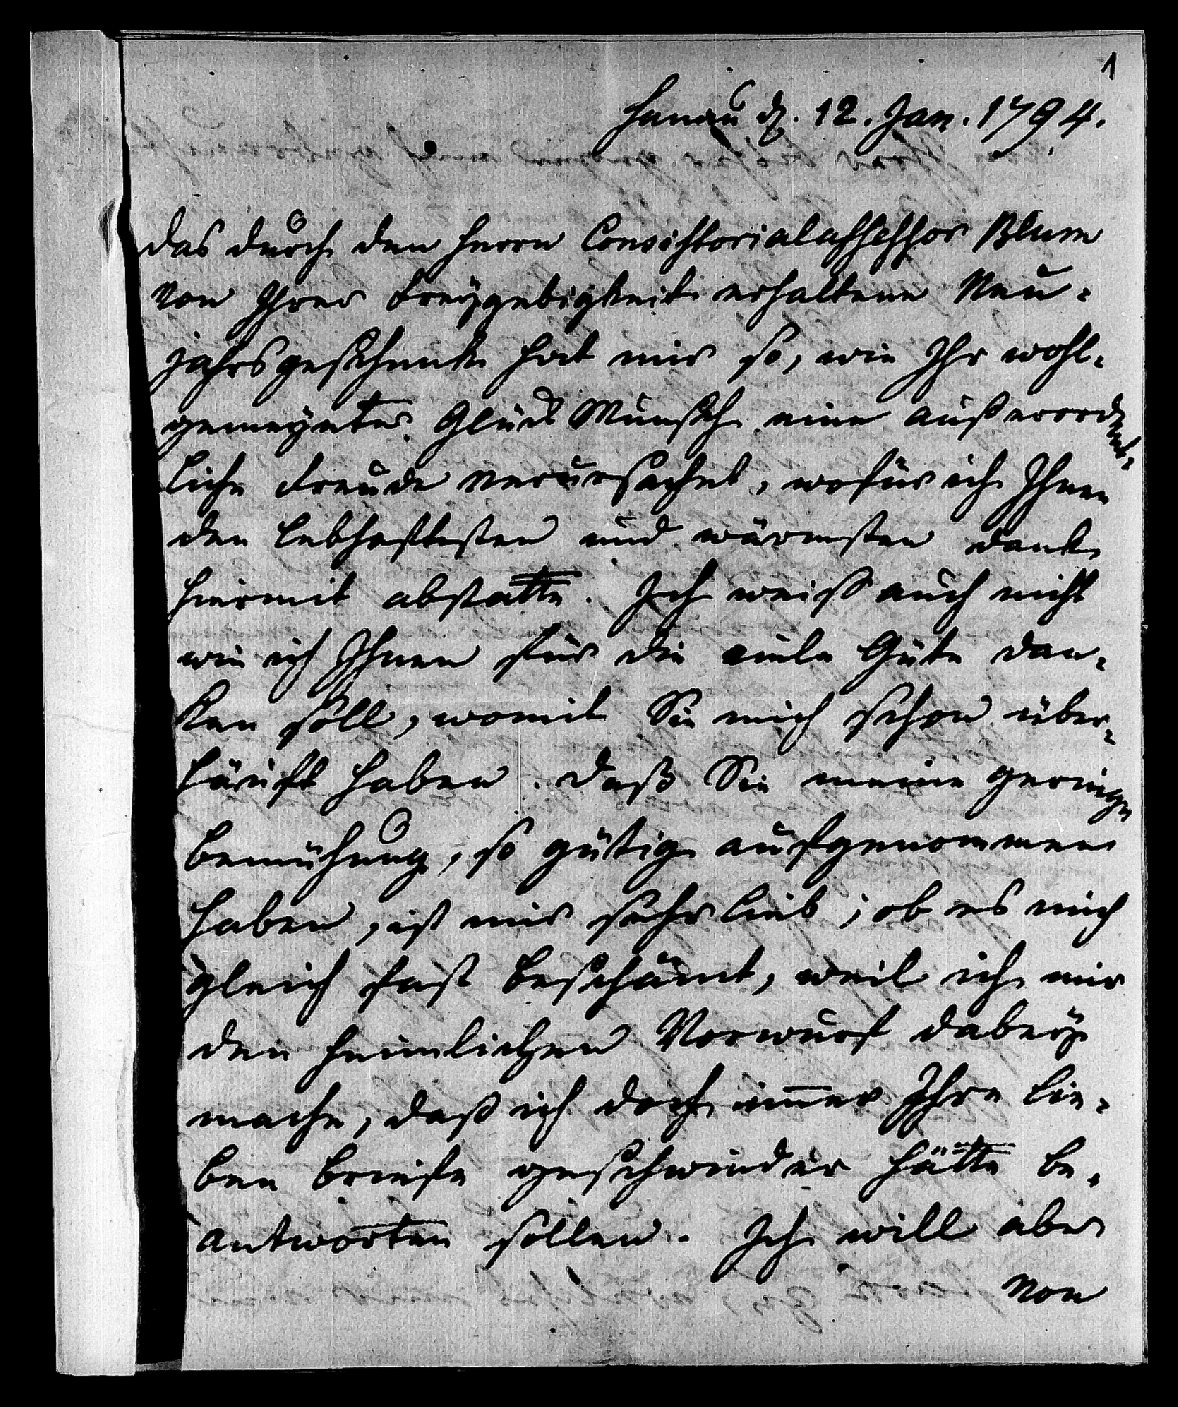 1
Hanau d. 12. Jan. 1794.
Das durch den Herrn Consistorialassessor Blum
von Ihrer Freygebigkeit erhaltene Neu-
jahrsgeschenk hat mir so, wie Ihr wohl-
gemeynter Glück Wunsch eine außerordent-
liche Freude verursachet, wofür ich Ihnen
den lebhaftesten und wärmsten Dank
hiermit abstatte. Ich weiß auch nicht
wie ich Ihnen für die viele Güte dan-
ken soll, womit Sie mich schon über-
häuft haben. Daß Sie meine geringe
Bemühung, so gütig aufgenommen
haben, ist mir sehr lieb; ob es mich
gleich fast beschämt, weil ich mir
den heimlichen Vorwurf dabey
mache, daß ich doch immer Ihre lie-
ben Briefe geschwinder hätte be-
antworten sollen. Ich will aber
von